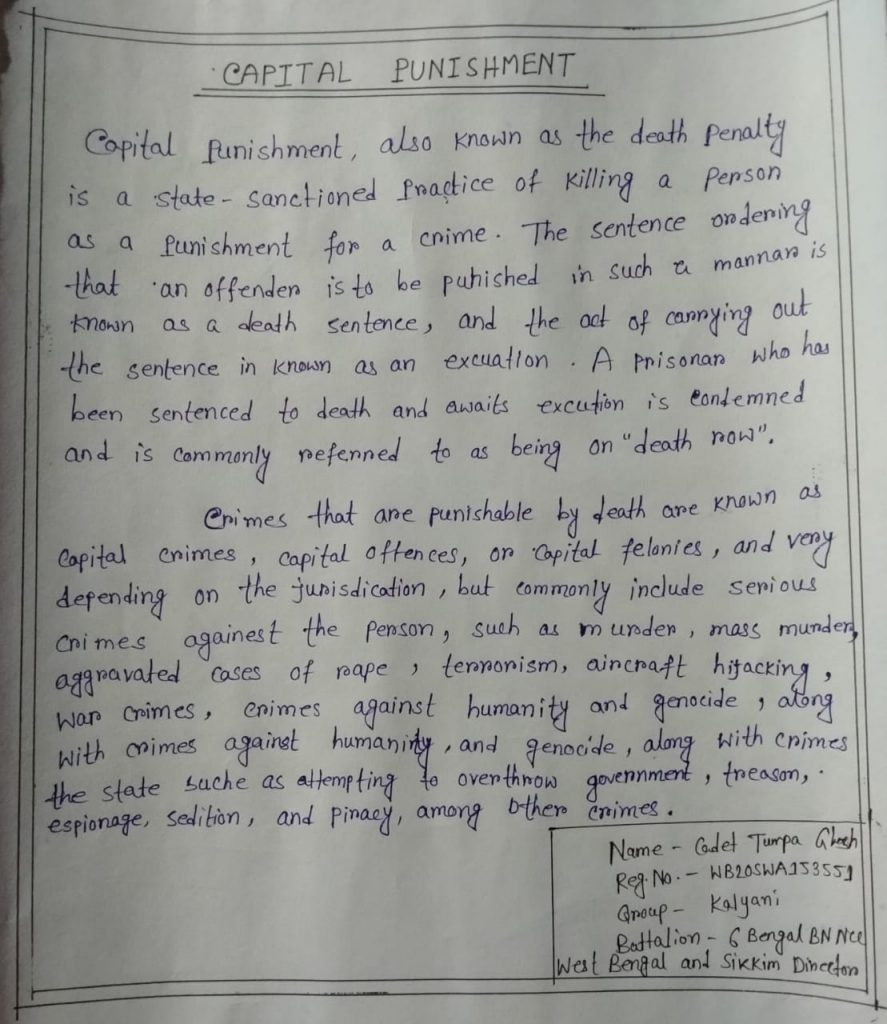 CAPITAL PUNISHMENT
Capital Punishment, also known as the death Penalty
is a state-sanctioned Practice of killing a Person
as a Punishment for a crime. The sentence ordering
that an offender is to be punished in such a mannar is
known as a death sentence, and the act of carrying out
the sentence in known as an excuation. A Prisonar who has
been sentenced to death and awaits excution is Condemned
and is commonly referred to as being on "death row".
Crimes that are punishable by death are known as
Capital crimes, capital offences, or Capital felonies, and very
depending on the jurisdication, but commonly include serious
crimes againest the person, such as murder, mass murder,
aggravated cases of rape, terrorism, aircraft hijacking,
war crimes, crimes against humanity and genocide, along
with crimes against humaninty, and genocide, along with crimes
the state suche as attempting to overthrow government, treason,
espionage, sedition, and piracy, among other crimes.
Name - Cadet Tumpa Ghosh
Reg. No. - WB20SWA153551
Group - Kalyani
Battalion - 6 Bengal BN Ncc
West Bengal and Sikkim Director